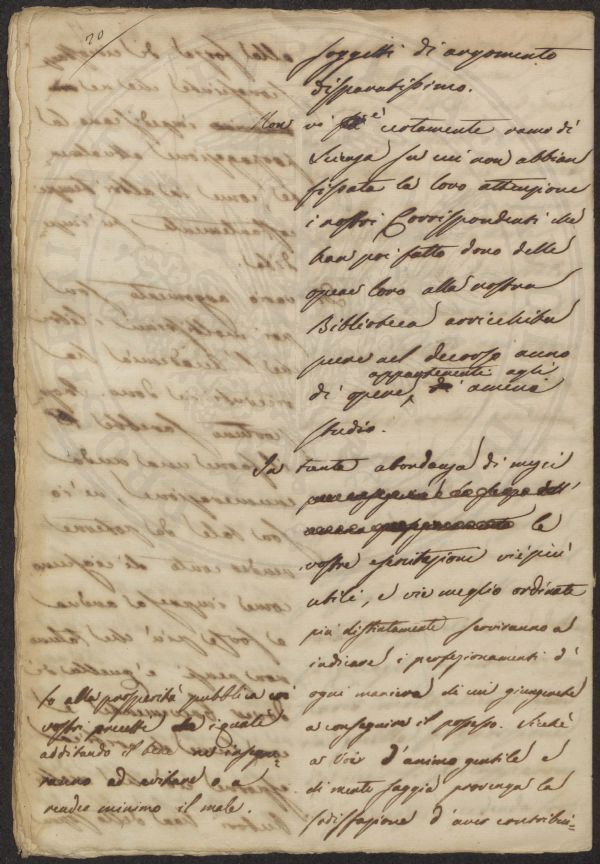 20
soggetti di argomento
disparatissimo.
Non vi è certamente ramo di
Scienza su cui non abbian
fissata la loro attenzione
i nostri Corrispondenti che
han poi fatto dono delle
opere loro alla nostra
Biblioteca arricchita
pure nel decorso anno
di opere appartenenti agli ameni
studio.
In tanta abondanza di mezzi
le
vostre esercitazioni viè più
utili, e vie meglio ordinate
più distintamente serviranno a
indicare i perfezionamenti d'
ogni maniera di cui giungerete
a conseguire il possesso. Sicché
a Voi d'animo gentile e
di mente saggia provenga la
sodisfazione d'aver contribui-
to alla prosperità pubblica
vostri precetti
additando il bene ne insegne-
ranno ad evitare o a
render minimo il male.